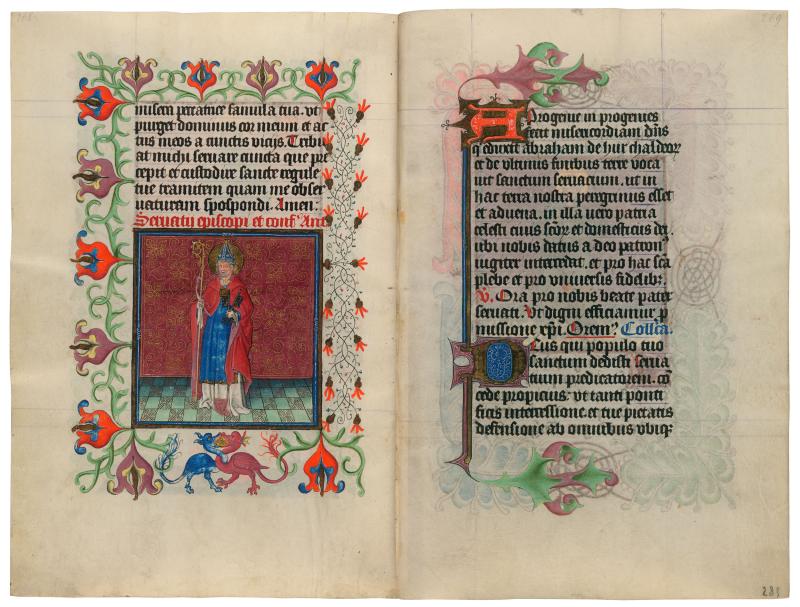 miseri peccatrice famula tua. vt
purget dominus cor meum et ac
tus meos a cunctis vicijs. Tribu
at michi seruare cuncta que pre
cepit et custodire sancte regule
tue tramitem quam me obser
uaturam spospondi. Amen.
Seruatii episcopi et conf' Ant
A Progenie in progenies
fecit misericordiam dns
q' eduxit abraham de hur chaldeor
et de vltimis finibus terre voca
uit sanctum seruacium. ut in
hac terra nostra peregrinus esset
et aduena. in illa uero patria
celesti ciuis scor et domesticus dei
ubi nobis datus a deo patron'
iugiter intercedat. et pro hac sca
plebe et pro vniuersis fidelib;
V. Ora pro nobis beate pater
seruati. Vt digni efficiamur p
missione xpi. Orem' Collca.
Deus qui populo tuo
sanctum dedisti serua
cium predicatorem. con
cede propicius: vt tanti ponti
ficis intercessione. et tue pietatis
defensione ab omnibus vbiq;
269
283